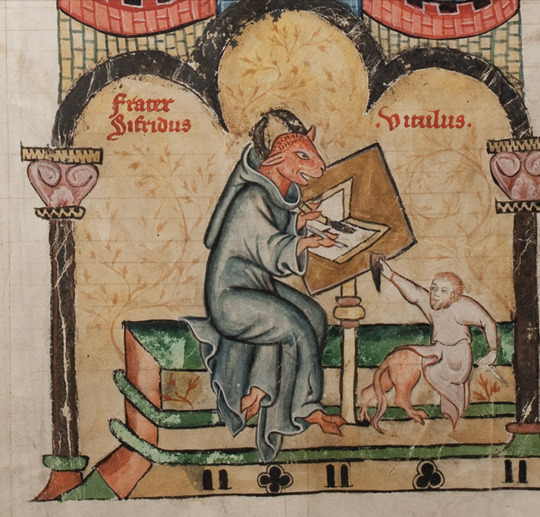 Frater
Sifridus
.Vitulus.